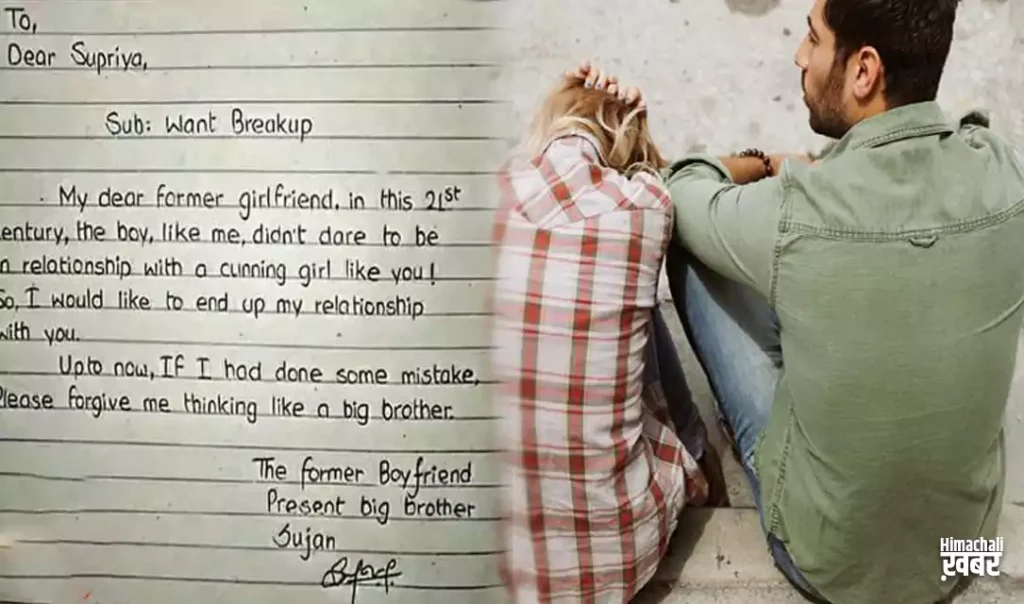 To,
Dear Supriya,
Sub: Want Breakup
My dear former girlfriend, in this 21st
entury, the boy, like me, didn't dare to be
n relationship with a cunning girl like you!
So, I would like to end up my relationship
with you.
Upto now, If I had done some mistake,
Please forgive me thinking like a big brother.
The former Boyfriend
Present big brother
Sujan
Himachali
ख़बर